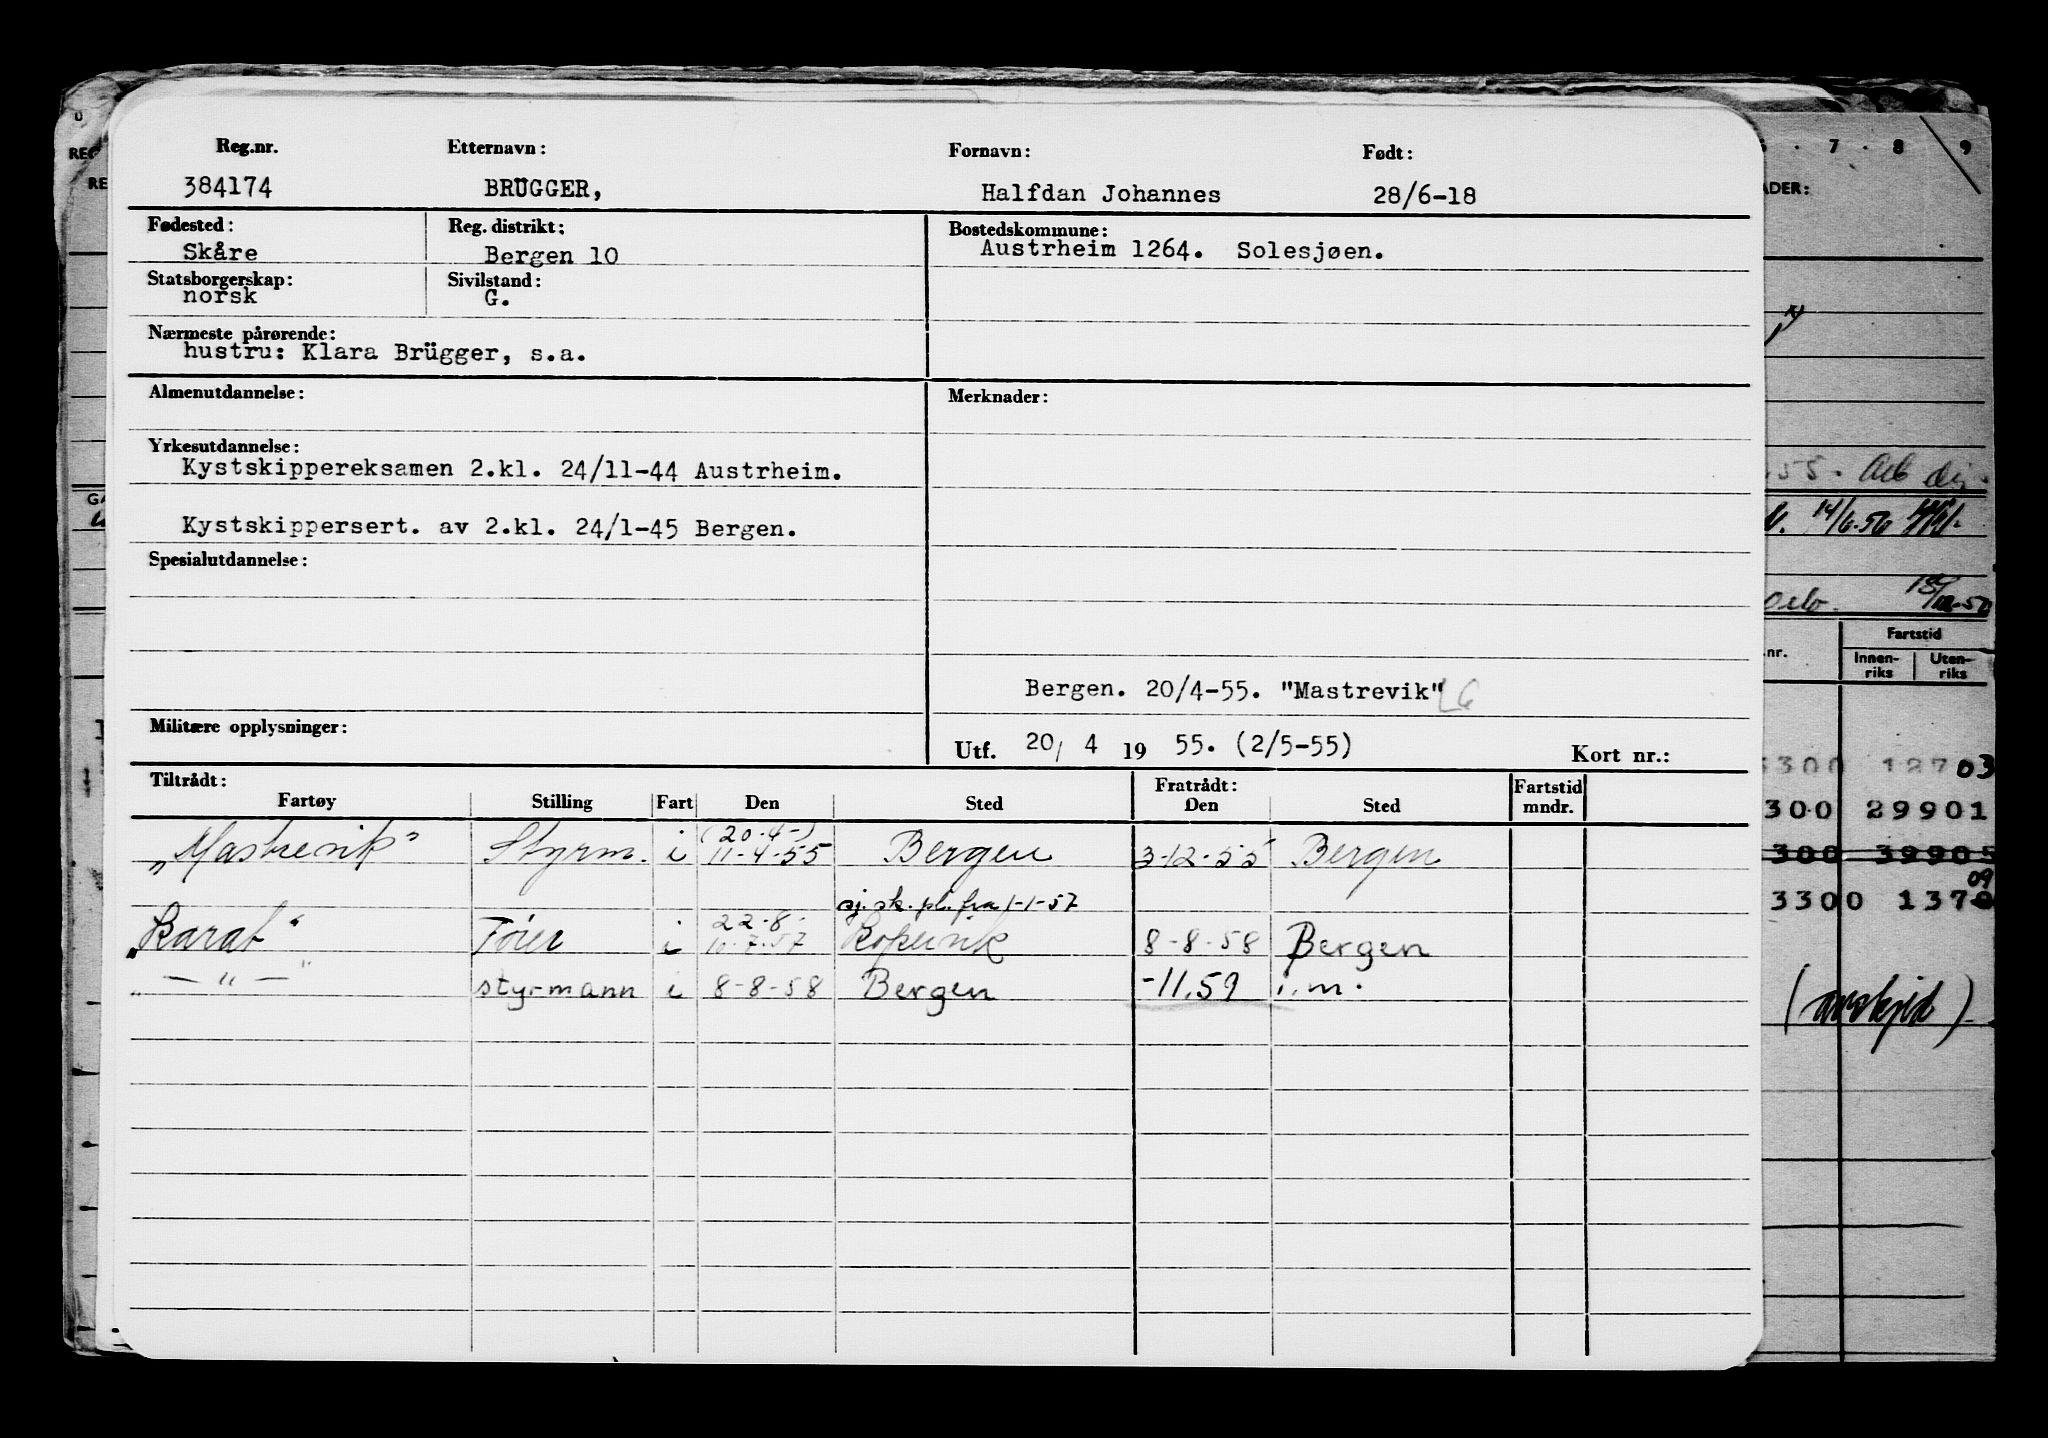 Reg.nr. Etternavn: Fornavn: Født:
384174 BRÜGGER, Halfdan Johannes 28/6-18
Fødested: Reg. distrikt: Bostedskommune:
Skåre Bergen 10 Austrheim 1264. Solesjøen.
Statsborgerskap: Sivilstand:
norsk G.
Nærmeste pårørende:
hustru: Klara Brügger, s.a.
Almenutdannelse: Merknader:
Yrkesutdannelse:
Kystskippereksamen 2.kl. 24/11-44 Austrheim.
Kystskippersert. av 2.kl. 24/1-45 Bergen.
Spesialutdannelse:
Bergen. 20/4-55. "Mastrevik"
Militære opplysninger:
Utf. 20/ 4 19 55. (2/5-55) Kort nr.:
Tiltrådt: Fratrådt:
Fartøy Stilling Fart Den Sted Den Sted Fartstid mndr.
(20-4-)
„Mastrevik" Styrm. i 11-4-55 Bergen 3-12-55 Bergen
sj. sk. pl. fra 1-1-57
22-8-
„Karat" i 10-7-57 Kopervik 8-8-58 Bergen
— " — styrmann i 8-8-58 Bergen -11.59 i.m.
7 . 8 9
ADER:
55.
14/6.56
Oslo.
Fartstid
nr. Innen-riks Uten-riks
3300 12703
300 29901
300 39905
09
3300 1378
(avskjed)